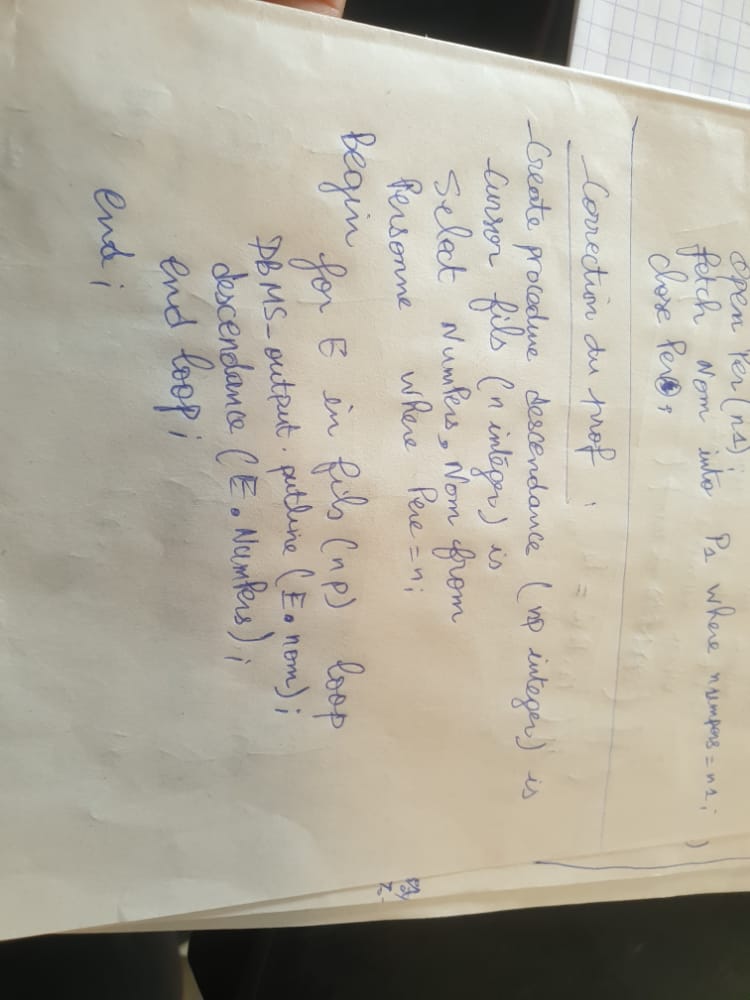 open Per(n1);
fetch Nom into P1 where numpers = n1;)
close Per;
Correction du prof :
Create procedure descendance (np integer) is
Cursor fils (n integer) is
Select Numpers, Nom from
Personne where Pere = n;
Begin for E in fils (np) loop
DBMS_output.putline (E.nom);
descendance (E.Numpers);
end loop;
end;